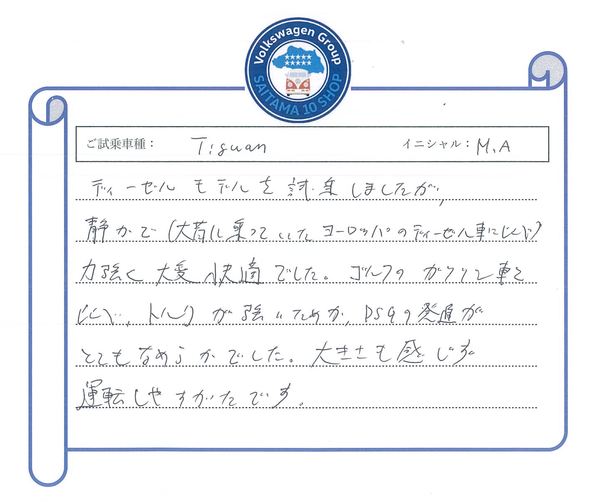 Volkswagen Group
SAITAMA 10 SHOP
ご試乗車種： Tiguan イニシャル： M.A
ディーゼルモデルを試乗しましたが、
静かで(大昔に乗っていたヨーロッパのディーゼル車に比べ)
力強く大変快適でした。ゴルフのガソリン車と
比べ、トルクが強いためか、DSGの発進が
とてもなめらかでした。大きさも感じず
運転しやすかったです。